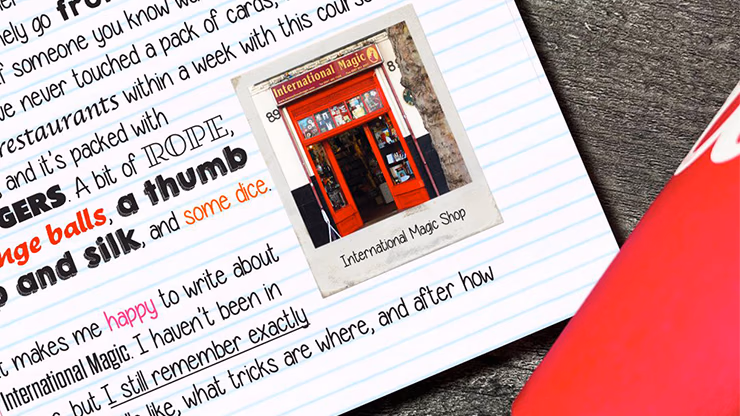 nely go from
of someone you know wa
ve never touched a pack of cards,
restaurants within a week with this course
and it's packed with
GERS. A bit of ROPE,
nge balls, a thumb
p and silk, and some dice.
International Magic
89
8
International Magic Shop
t makes me happy to write about
International Magic. I haven't been in
but I still remember exactly
like, what tricks are where, and after how